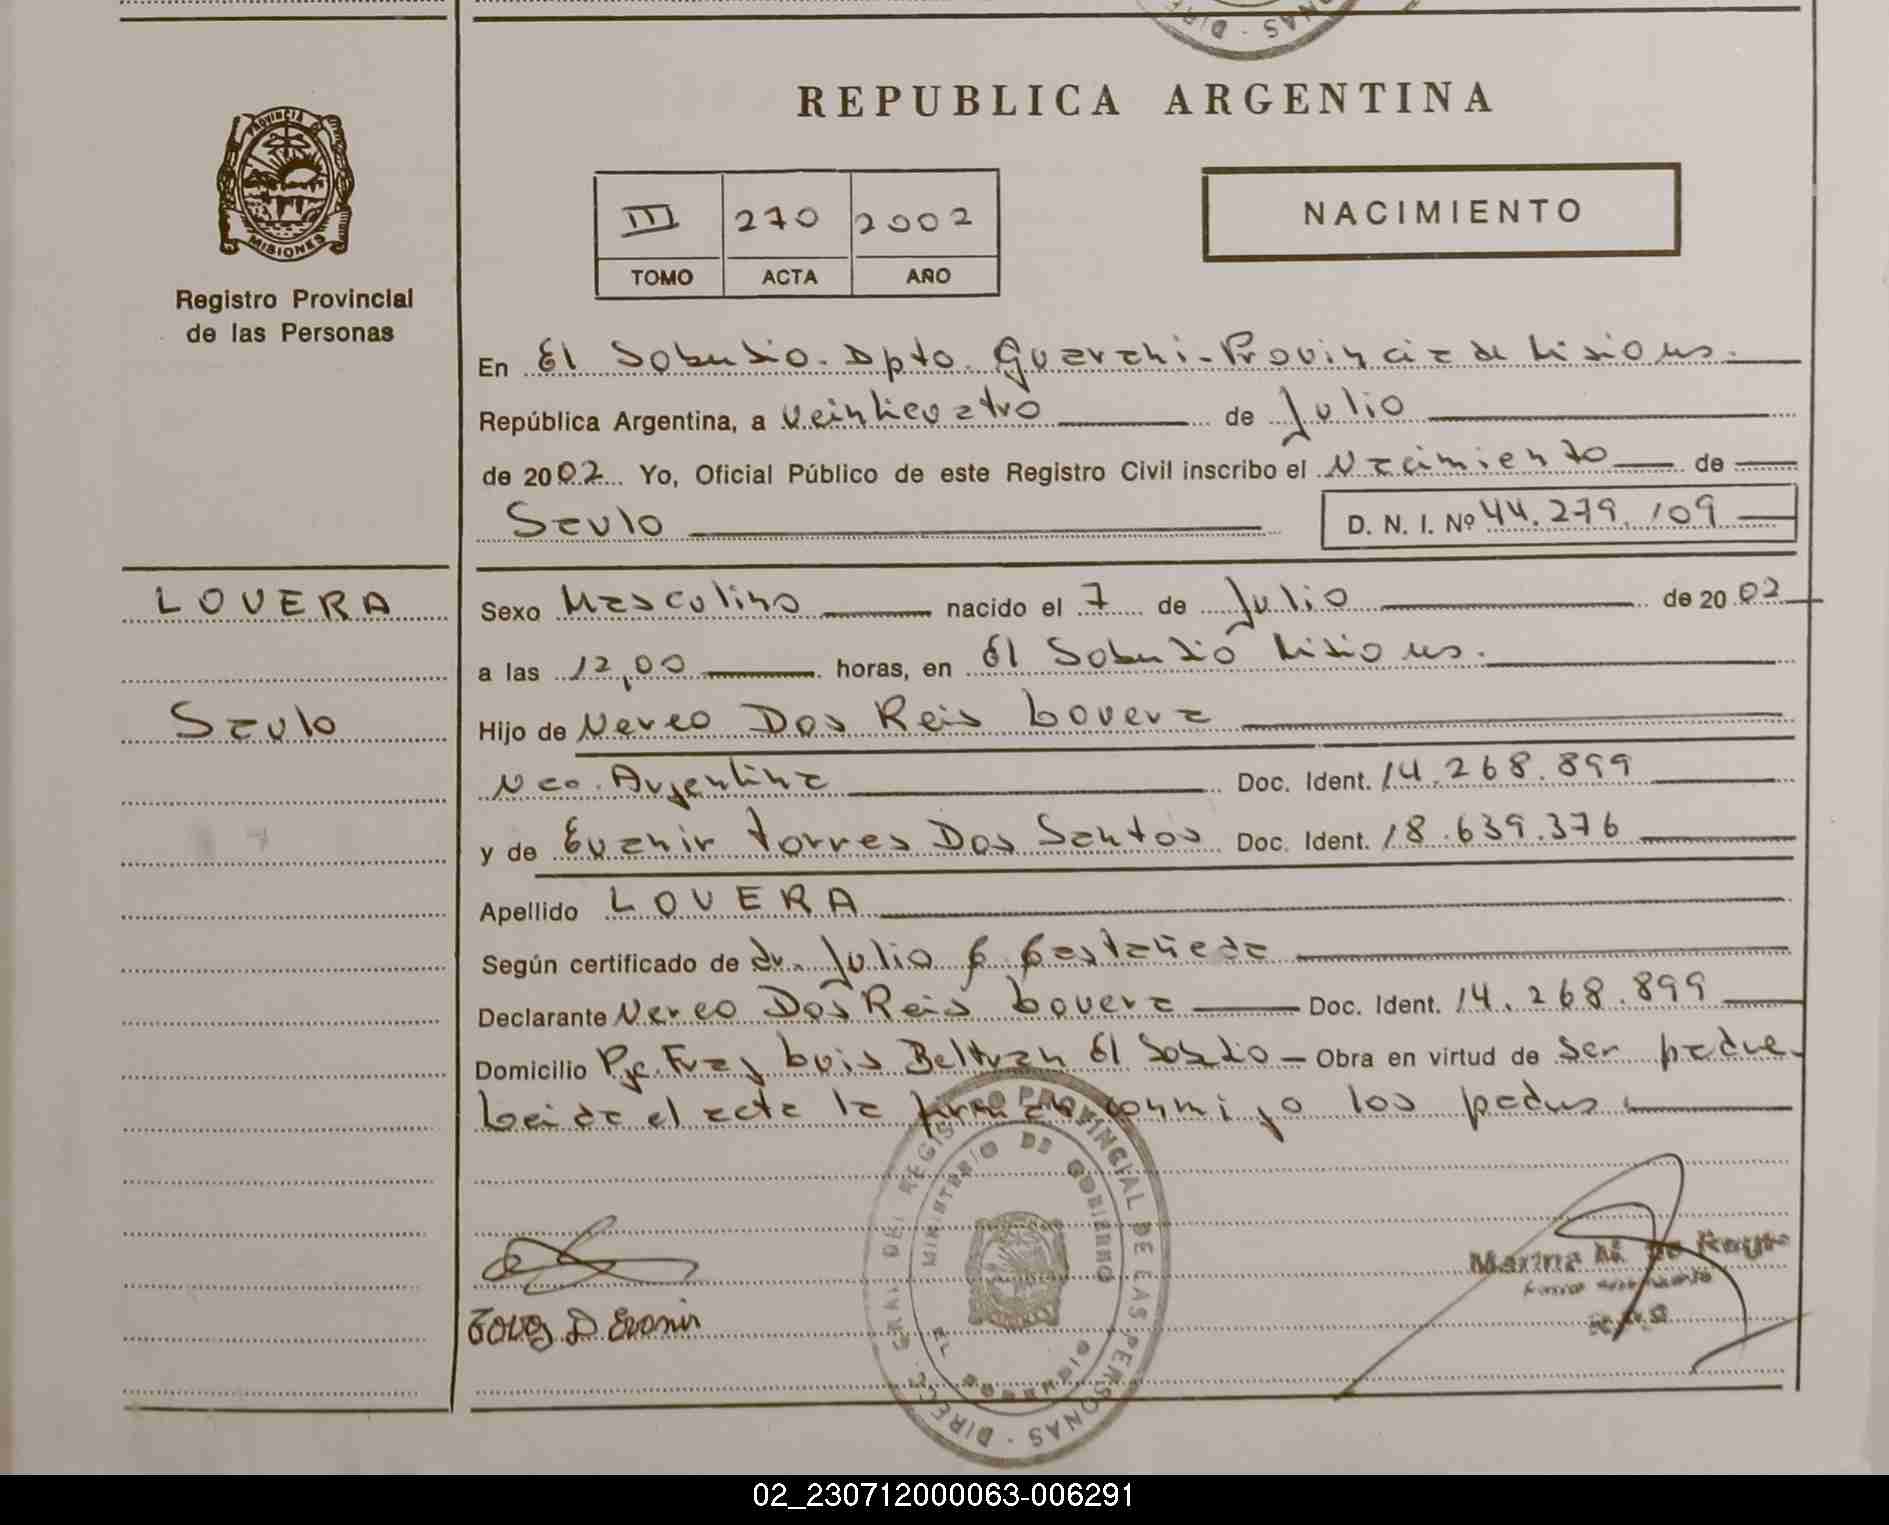 REPUBLICA ARGENTINA
PROVINCIA DE
MISIONES
Registro Provincial
de las Personas
III 270 2002
TOMO ACTA AÑO
NACIMIENTO
En El Soberbio. Dpto. Guarani - Provincia de Misiones.
República Argentina, a Veinticuatro de Julio
de 2002 Yo, Oficial Público de este Registro Civil inscribo el Nacimiento de
Saulo D. N. I. Nº 44.279.109
LOVERA
Saulo
Sexo Masculino nacido el 7 de Julio de 2002
a las 12,00 horas, en El Soberbio Misiones.
Hijo de Nereo Dos Reis Lovera
Nco. Argentina Doc. Ident. 14.268.899
y de Evanir Torres Dos Santos Doc. Ident. 18.639.376
Apellido LOVERA
Según certificado de dr. Julio C Castañeda
Declarante Nereo Dos Reis Lovera Doc. Ident. 14.268.899
Domicilio Pje. Fray Luis Beltran El Sobebio Obra en virtud de ser padre.
Leida el acta la firman conmigo los padres.
DIRECC. GRAL. DEL REGISTRO PROVINCIAL DE LAS PERSONAS
MINISTERIO DE GOBIERNO
EL SOBERBIO
Marina
02_230712000063-006291